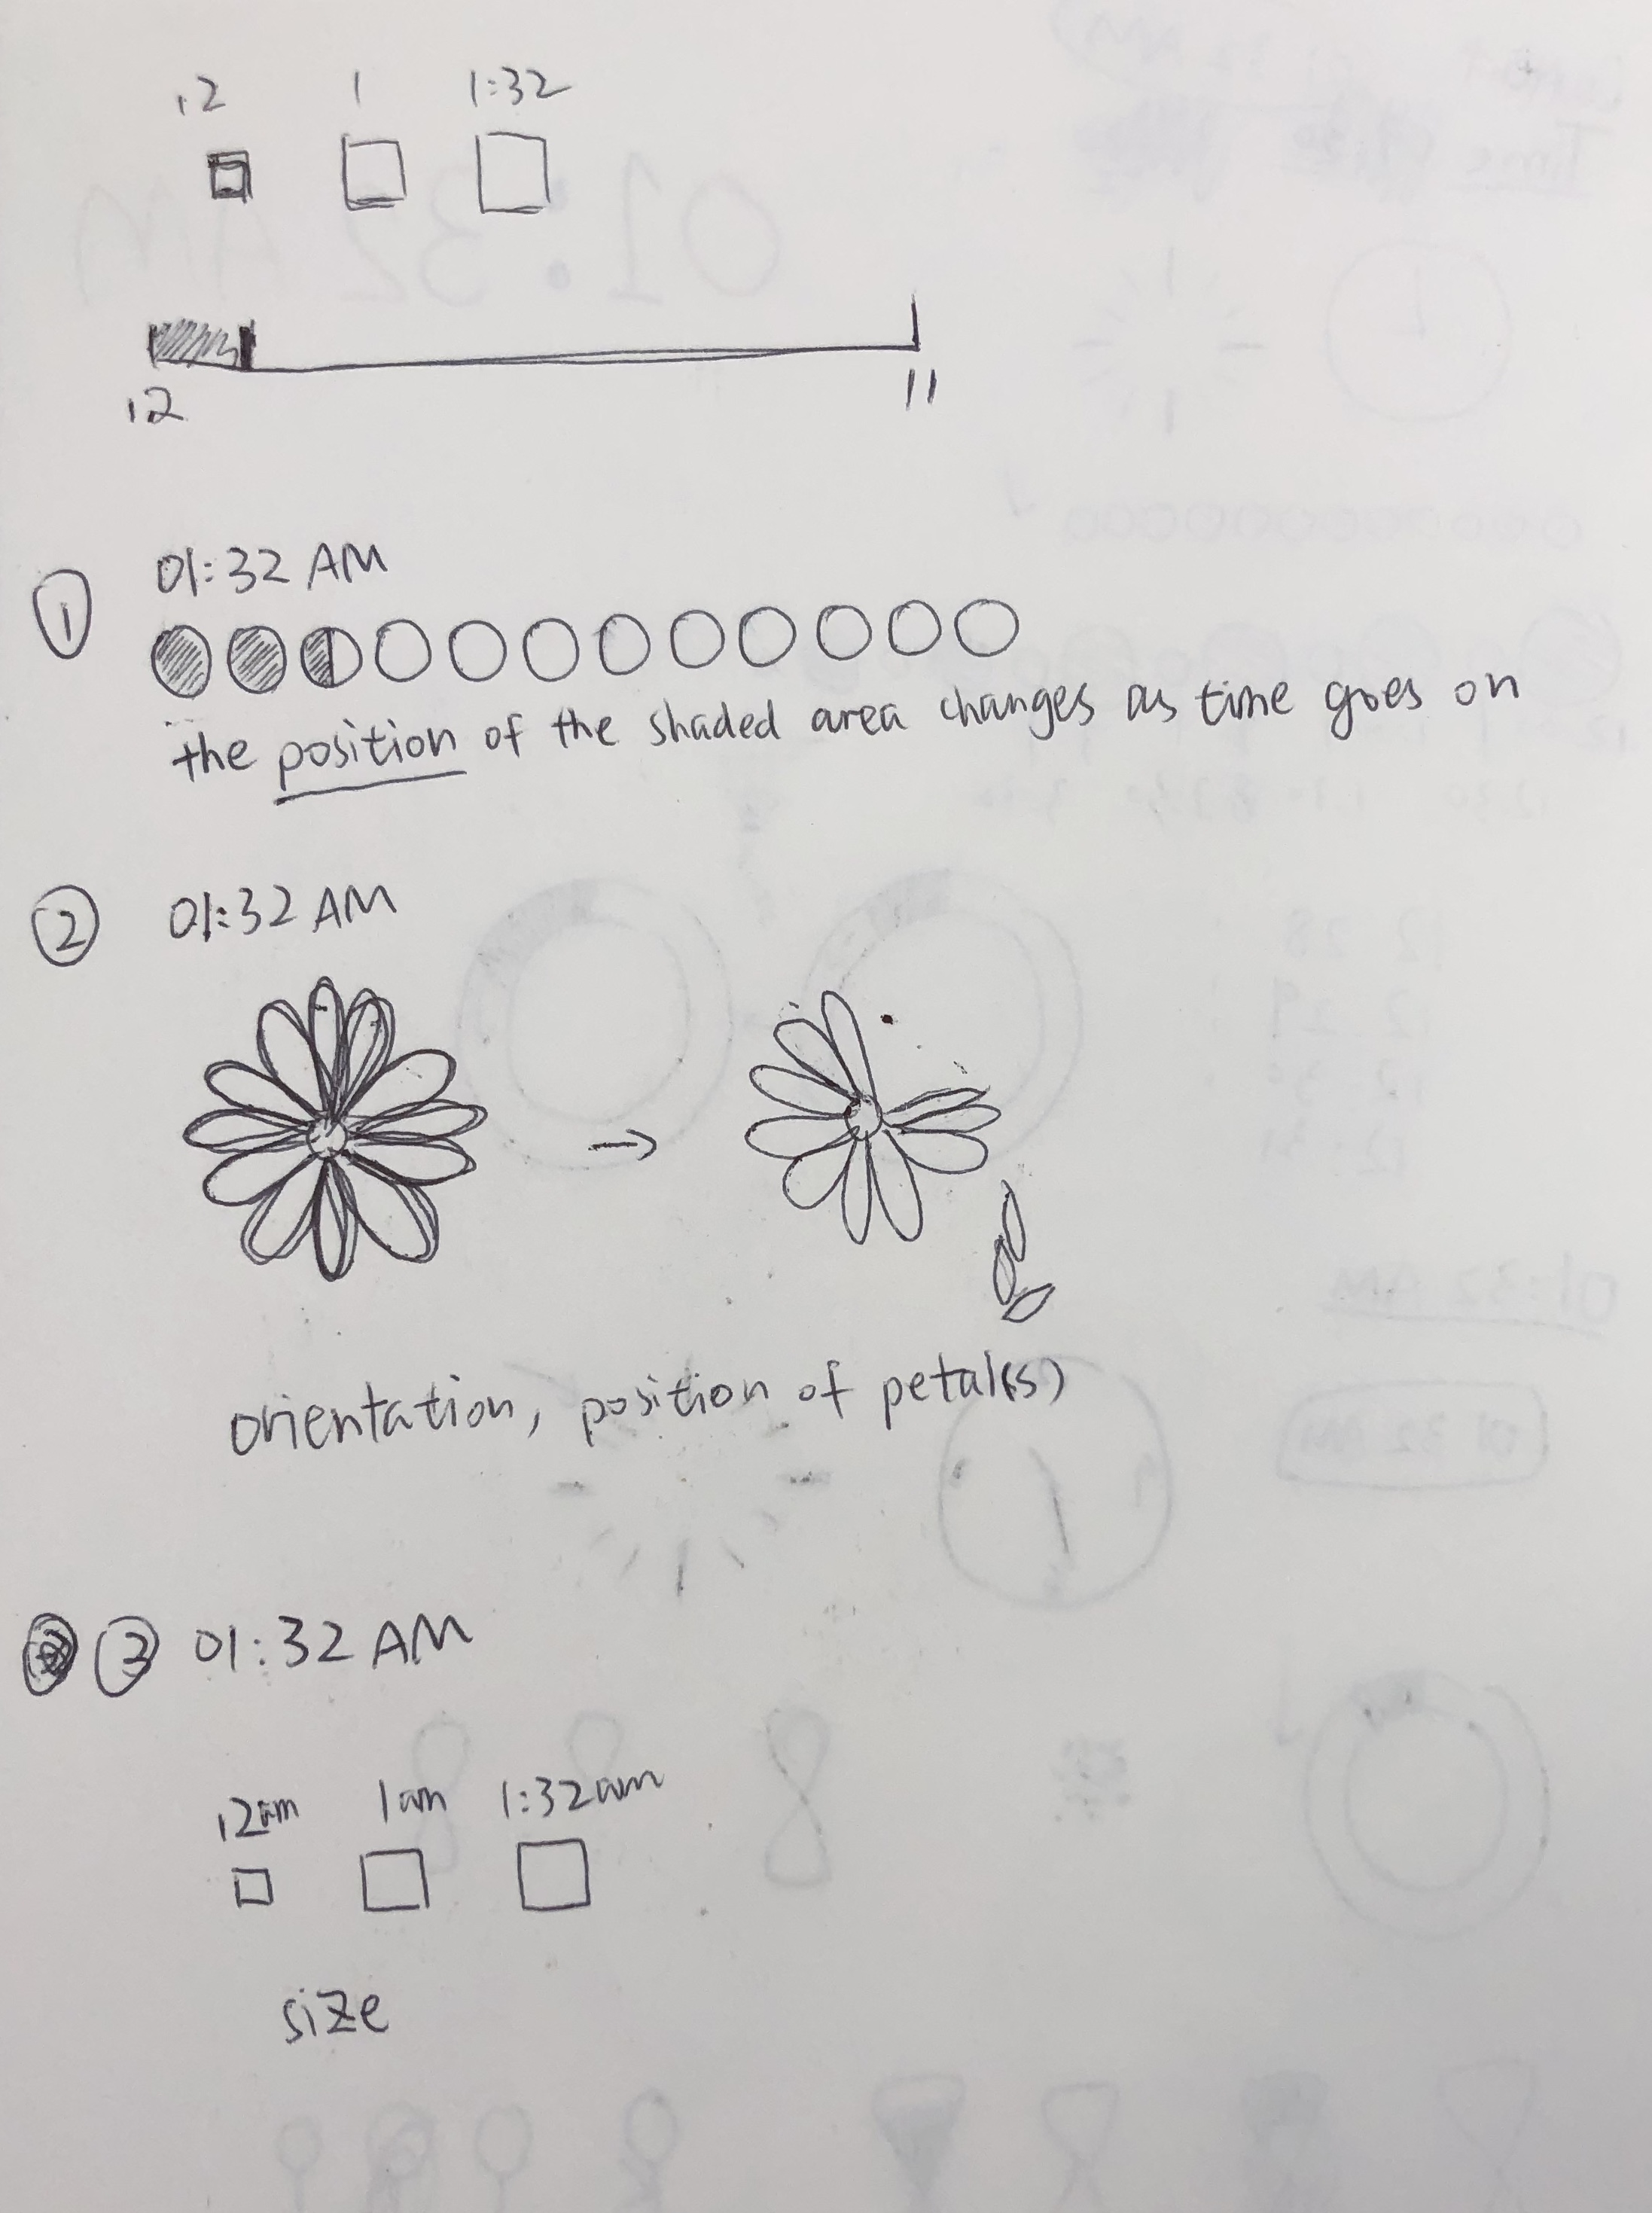 12 1 1:32
12 11
① 01:32 AM
the position of the shaded area changes as time goes on
② 01:32 AM
orientation, position of petal(s)
③ 01:32 AM
12am 1am 1:32am
size